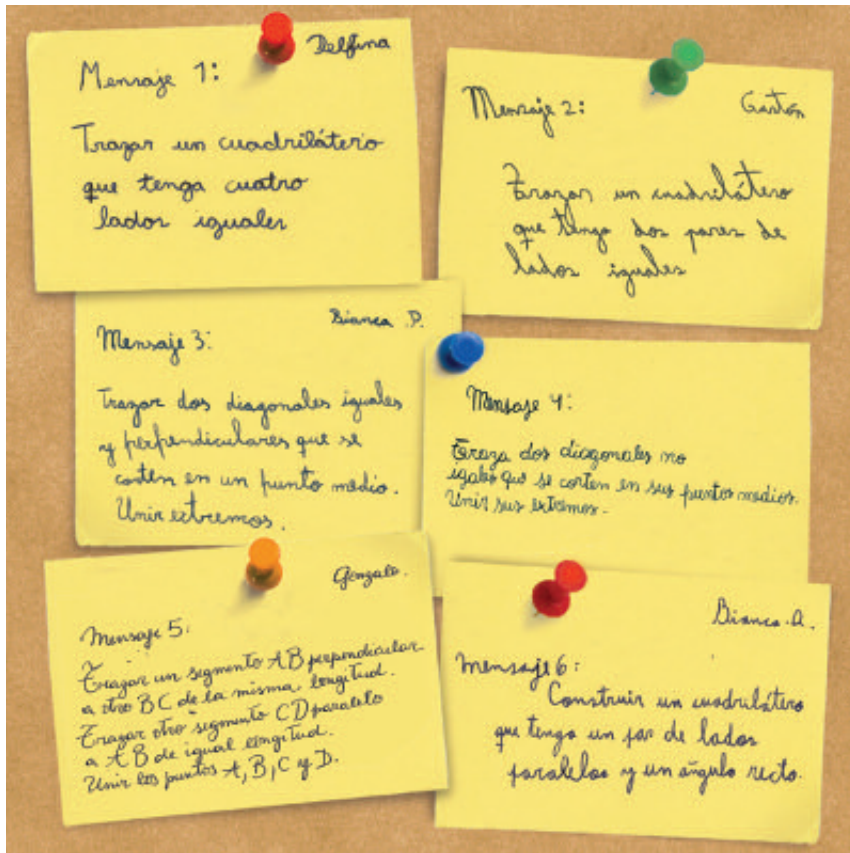 Mensaje 1:
Delfina
Trazar un cuadrilátero
que tenga cuatro
lados iguales
Mensaje 2:
Gastón
Trazar un cuadrilátero
que tenga dos pares de
lados iguales
Mensaje 3:
Bianca P.
Trazar dos diagonales iguales
y perpendiculares que se
corten en un punto medio.
Unir extremos.
Mensaje 4:
Traza dos diagonales no
igales que se corten en sus puntos medios.
Unir sus extremos.
Mensaje 5:
Gonzalo.
Trazar un segmento AB perpendicular
a otro BC de la misma longitud.
Trazar otro segmento CD paralelo
a AB de igual longitud.
Unir los puntos A, B, C y D.
Mensaje 6:
Bianca A.
Construir un cuadrilátero
que tenga un par de lados
paralelos y un ángulo recto.